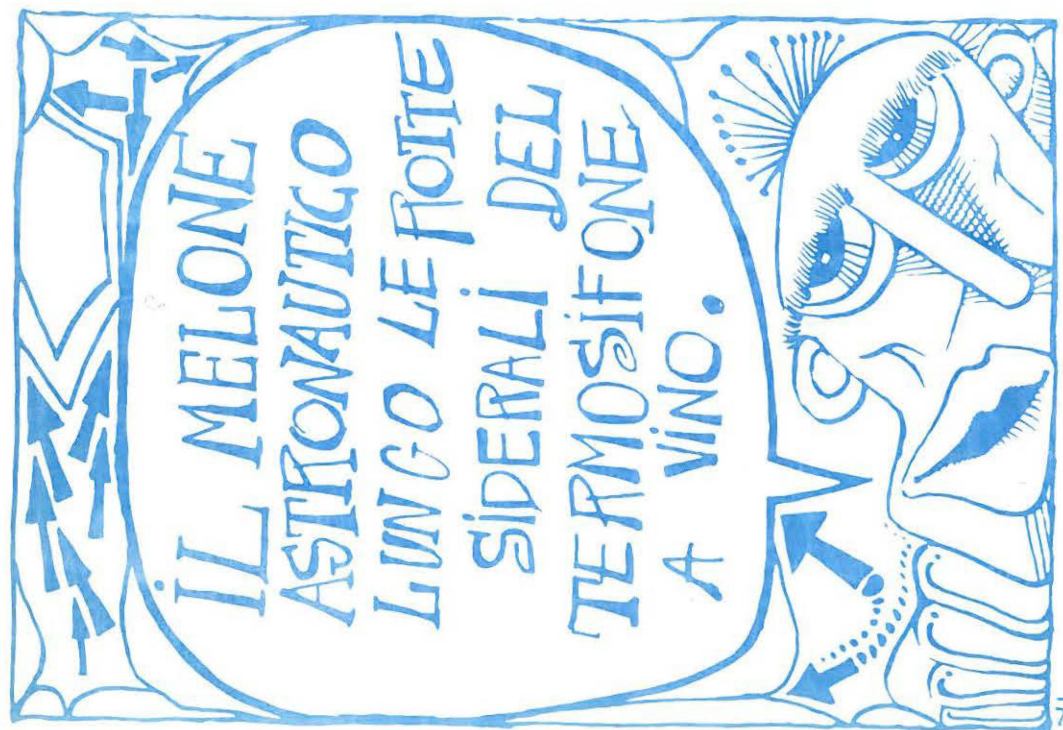 iL MELONE
ASTRONAUTICO
LUNGO LE ROTTE
SiDERALi DEL
TERMOSiFONE
A ViNO.